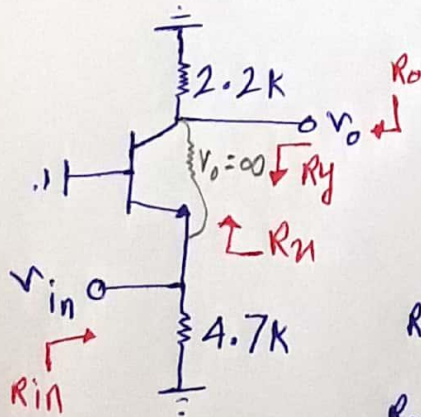 2.2K
Ro
vo
ro = ∞
Ry
Rx
vin
4.7K
R
Rin
R